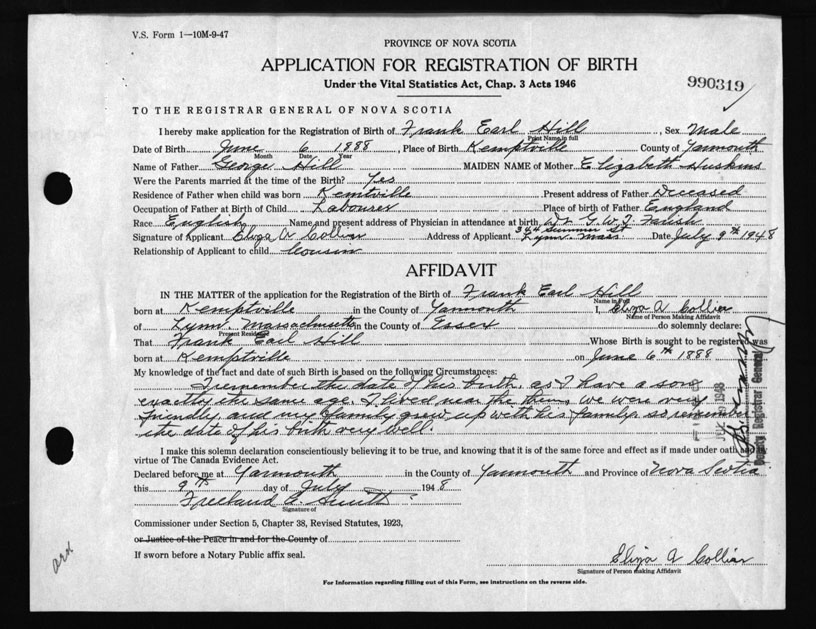 V.S. Form 1—10M-9-47
PROVINCE OF NOVA SCOTIA
APPLICATION FOR REGISTRATION OF BIRTH
Under the Vital Statistics Act, Chap. 3 Acts 1946
990319
TO THE REGISTRAR GENERAL OF NOVA SCOTIA
I hereby make application for the Registration of Birth of Frank Earl Hill, Sex Male
Print Name in full
Date of Birth June 6 1888, Place of Birth Kemptville County of Yarmouth
Month Date Year
Name of Father George Hill MAIDEN NAME of Mother Elizabeth Huskins
Were the Parents married at the time of the Birth? Yes
Residence of Father when child was born Kemtville Present address of Father Deceased
Occupation of Father at Birth of Child Labourer Place of birth of Father England
Race English Name and present address of Physician in attendance at birth, Dr. G.W.T. Farish
Signature of Applicant Eliza A Collier Address of Applicant 344 Summer St Lynn. Mass Date July 9th 1948
Relationship of Applicant to child Cousin
AFFIDAVIT
IN THE MATTER of the application for the Registration of the Birth of Frank Earl Hill
Name in Full
born at Kemptville in the County of Yarmouth I, Eliza A Collier
Name of Person Making Affidavit
of Lynn. Massachusetts in the County of Essex do solemnly declare:
Present Residence
That Frank Earl Hill Whose Birth is sought to be registered was
born at Kemptville on June 6th 1888
My knowledge of the fact and date of such Birth is based on the following Circumstances:
I remember the date of his birth, as I have a son
exactly the same age. I lived near the them, we were very
friendly, and my family grew up with his family, so remember
the date of his birth very well.
Deputy Registrar General
I make this solemn declaration conscientiously believing it to be true, and knowing that it is of the same force and effect as if made under oath and by
virtue of The Canada Evidence Act.
Declared before me at Yarmouth in the County of Yarmouth and Province of Nova Scotia
this 9th day of July 1948
Freeland Smith
Signature of
Commissioner under Section 5, Chapter 38, Revised Statutes, 1923,
or Justice of the Peace in and for the County of
If sworn before a Notary Public affix seal.
Eliza A Collier
Signature of Person making Affidavit
For Information regarding filling out of this Form, see instructions on the reverse side.